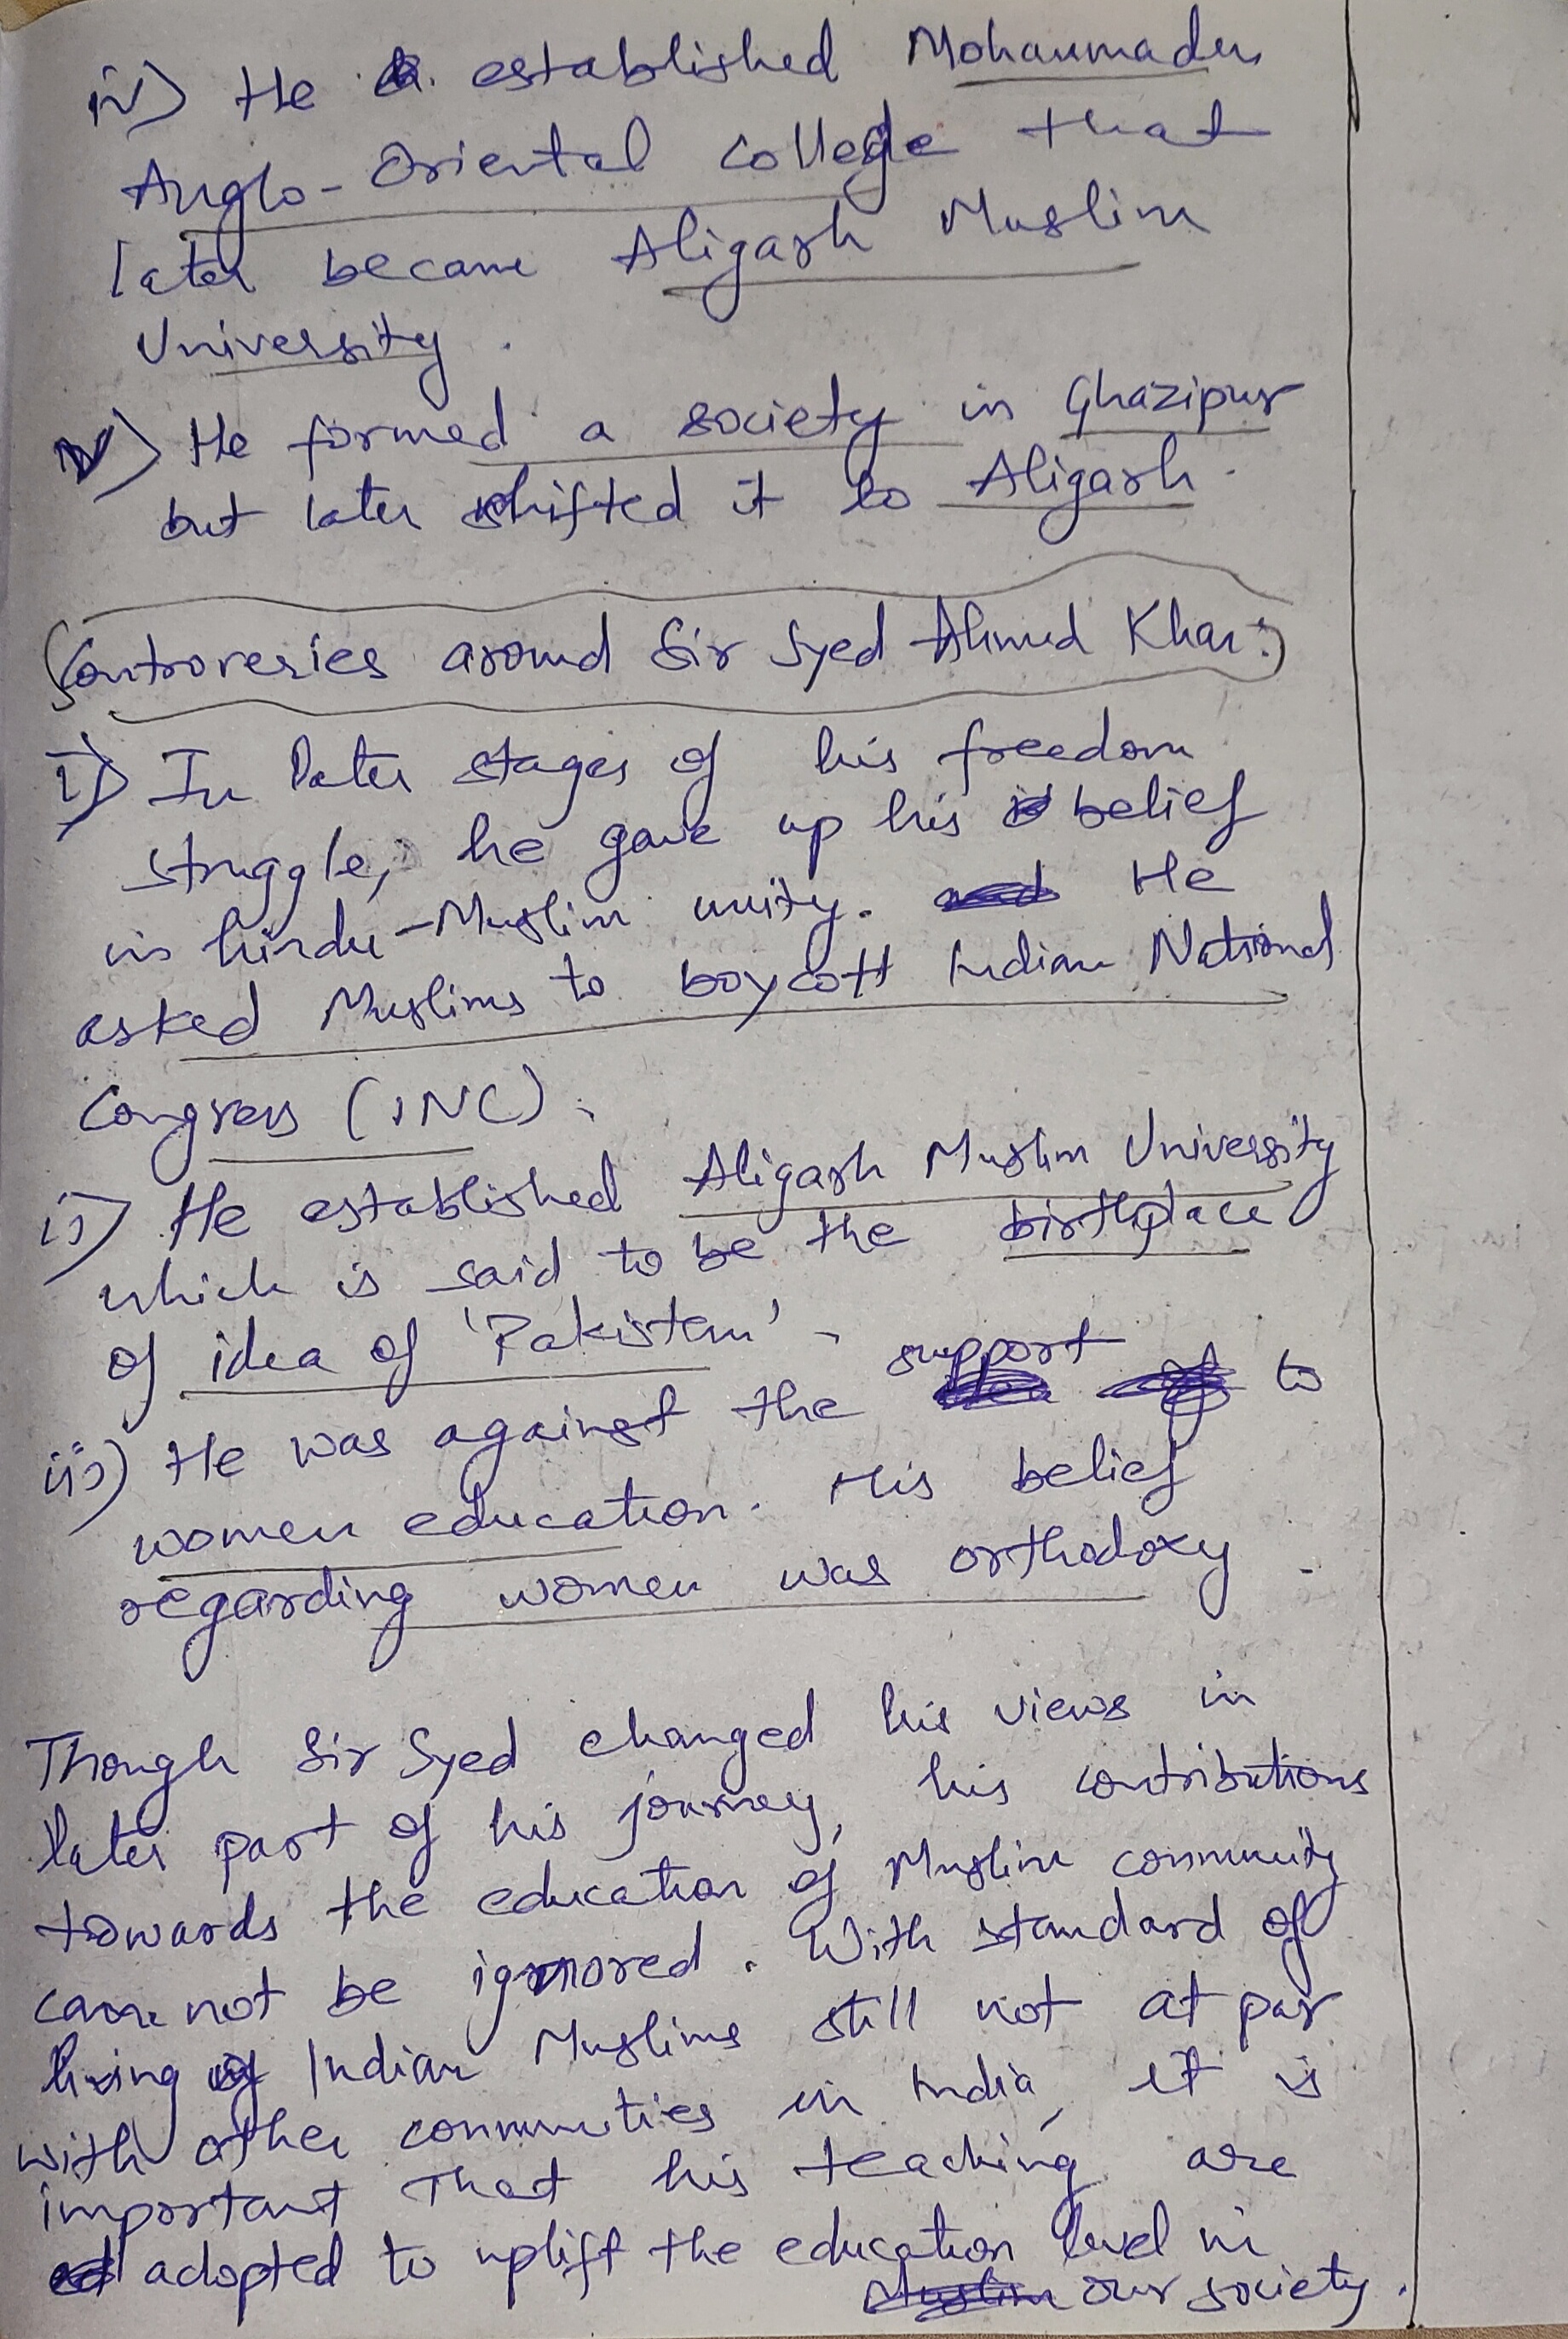 iv) He established Mohammaden
Anglo-Oriental College that
later became Aligarh Muslim
University.
v) He formed a society in Ghazipur
but later shifted it to Aligarh.
Controveries around Sir Syed Ahmed Khan:
i) In later stages of his freedom
struggle, he gave up his belief
in hindu-Muslim unity. He
asked Muslims to boycott Indian National
Congress (INC).
ii) He established Aligarh Muslim University
which is said to be the birthplace
of idea of 'Pakistan'.
iii) He was against the support to
women education. His belief
regarding women was orthodoxy.
Though Sir Syed changed his views in
later part of his journey, his contributions
towards the education of Muslim community
can not be ignored. With standard of
living of Indian Muslims still not at par
with other communties in India, it is
important that his teaching are
adopted to uplift the education level in
our society.